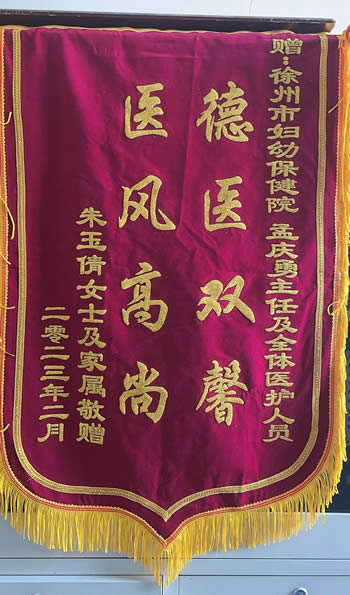 赠：徐州市妇幼保健院 孟庆勇主任及全体医护人员
德医双馨
医风高尚
朱玉倩女士及家属敬赠
二零二三年二月